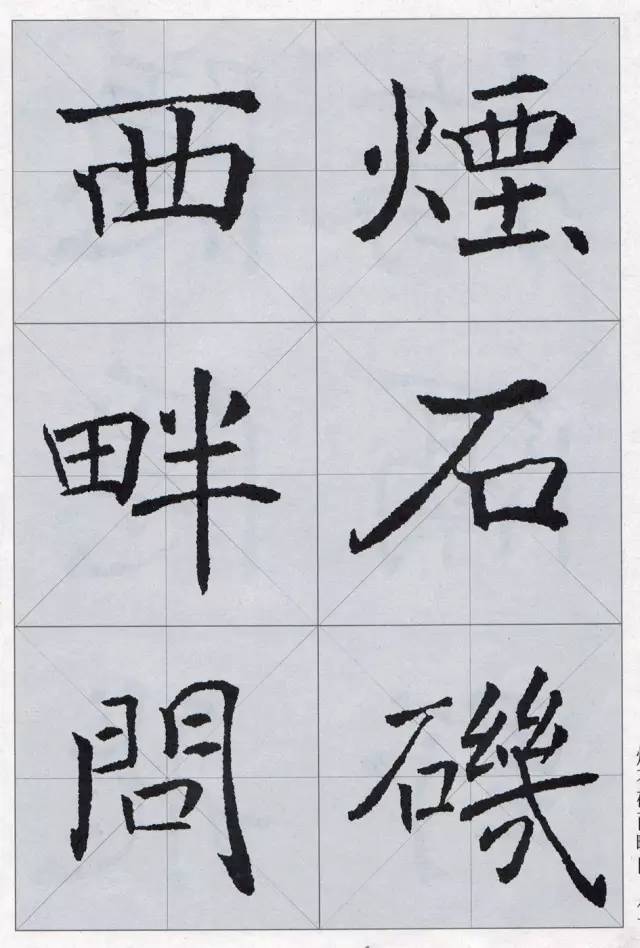 煙石磯
西畔問